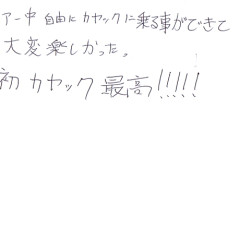 アー中 自由に カヤックに乗る事ができて
大変楽しかった。
初 カヤック 最高!!!!!